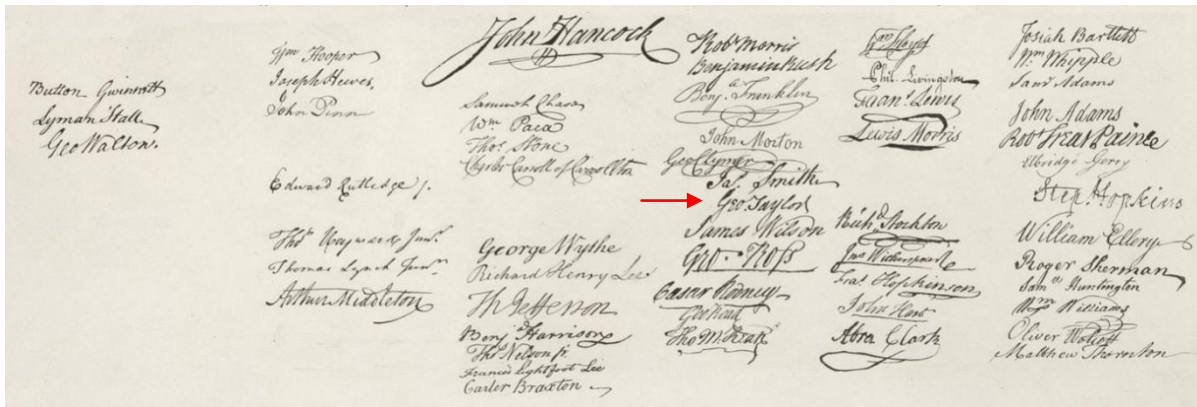 Button Gwinnett
Lyman Hall
Geo Walton.
Wm Hooper
Joseph Hewes,
John Penn
Edward Rutledge /.
Thos Heyward Junr.
Thomas Lynch Junr.
Arthur Middleton
John Hancock
Samuel Chase
Wm Paca
Thos Stone
Charles Carroll of Carrollton
George Wythe
Richard Henry Lee
Th Jefferson
Benj Harrison
Thos Nelson jr.
Francis Lightfoot Lee
Carter Braxton
Robt Morris
Benjamin Rush
Benja Franklin
John Morton
Geo Clymer
Jas. Smith
Geo. Taylor
James Wilson
Geo. Ross
Caesar Rodney
Geo Read
Tho M:Kean
Wm Floyd
Phil. Livingston
Frans. Lewis
Lewis Morris
Richd Stockton
Jno Witherspoon
Fras. Hopkinson
John Hart
Abra Clark
Josiah Bartlett
Wm Whipple
Saml Adams
John Adams
Robt Treat Paine
Elbridge Gerry
Step. Hopkins
William Ellery
Roger Sherman
Saml Huntington
Wm Williams
Oliver Wolcott
Matthew Thornton